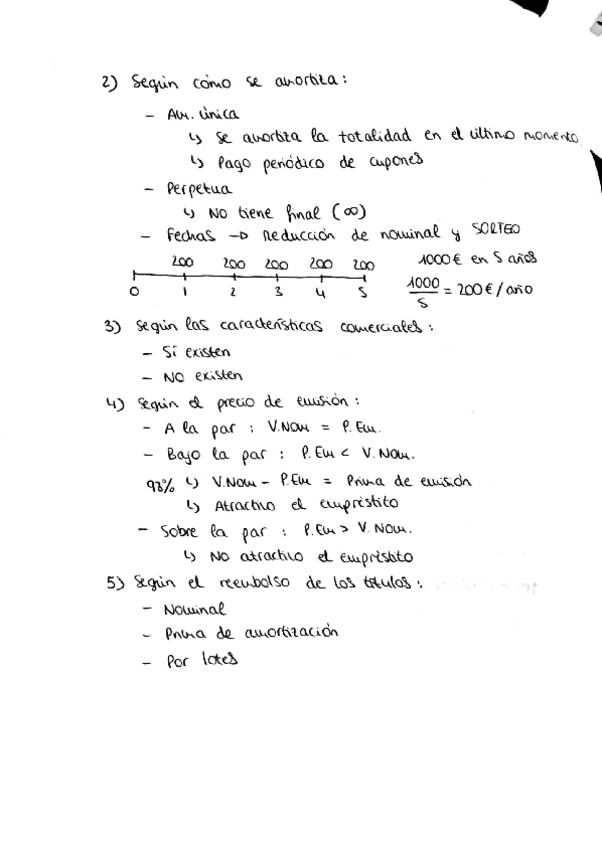 2) Según cómo se amortiza:
- Am. única
↳ Se amortiza la totalidad en el último momento.
↳ Pago periódico de cupones
- Perpetua
↳ NO tiene final (∞)
- Fechas → Reducción de nominal y SORTEO
200 200 200 200 200 1000€ en 5 años
0 1 2 3 4 5 1000/5 = 200€/año
3) Según las características comerciales:
- Sí existen
- NO existen
4) Según el precio de emisión:
- A la par: V.Nom = P.Em.
- Bajo la par: P.Em < V.Nom.
98% ↳ V.Nom - P.Em = Prima de emisión
↳ Atractivo el empréstito
- Sobre la par: P.Em > V.Nom.
↳ NO atractivo el empréstito
5) Según el reembolso de los títulos:
- Nominal
- Prima de amortización
- Por lotes